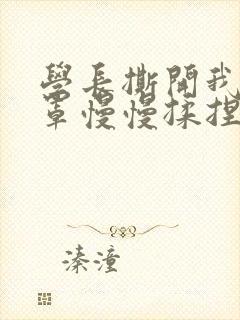 學長撕開我
罩慢慢揉捏
溱潼